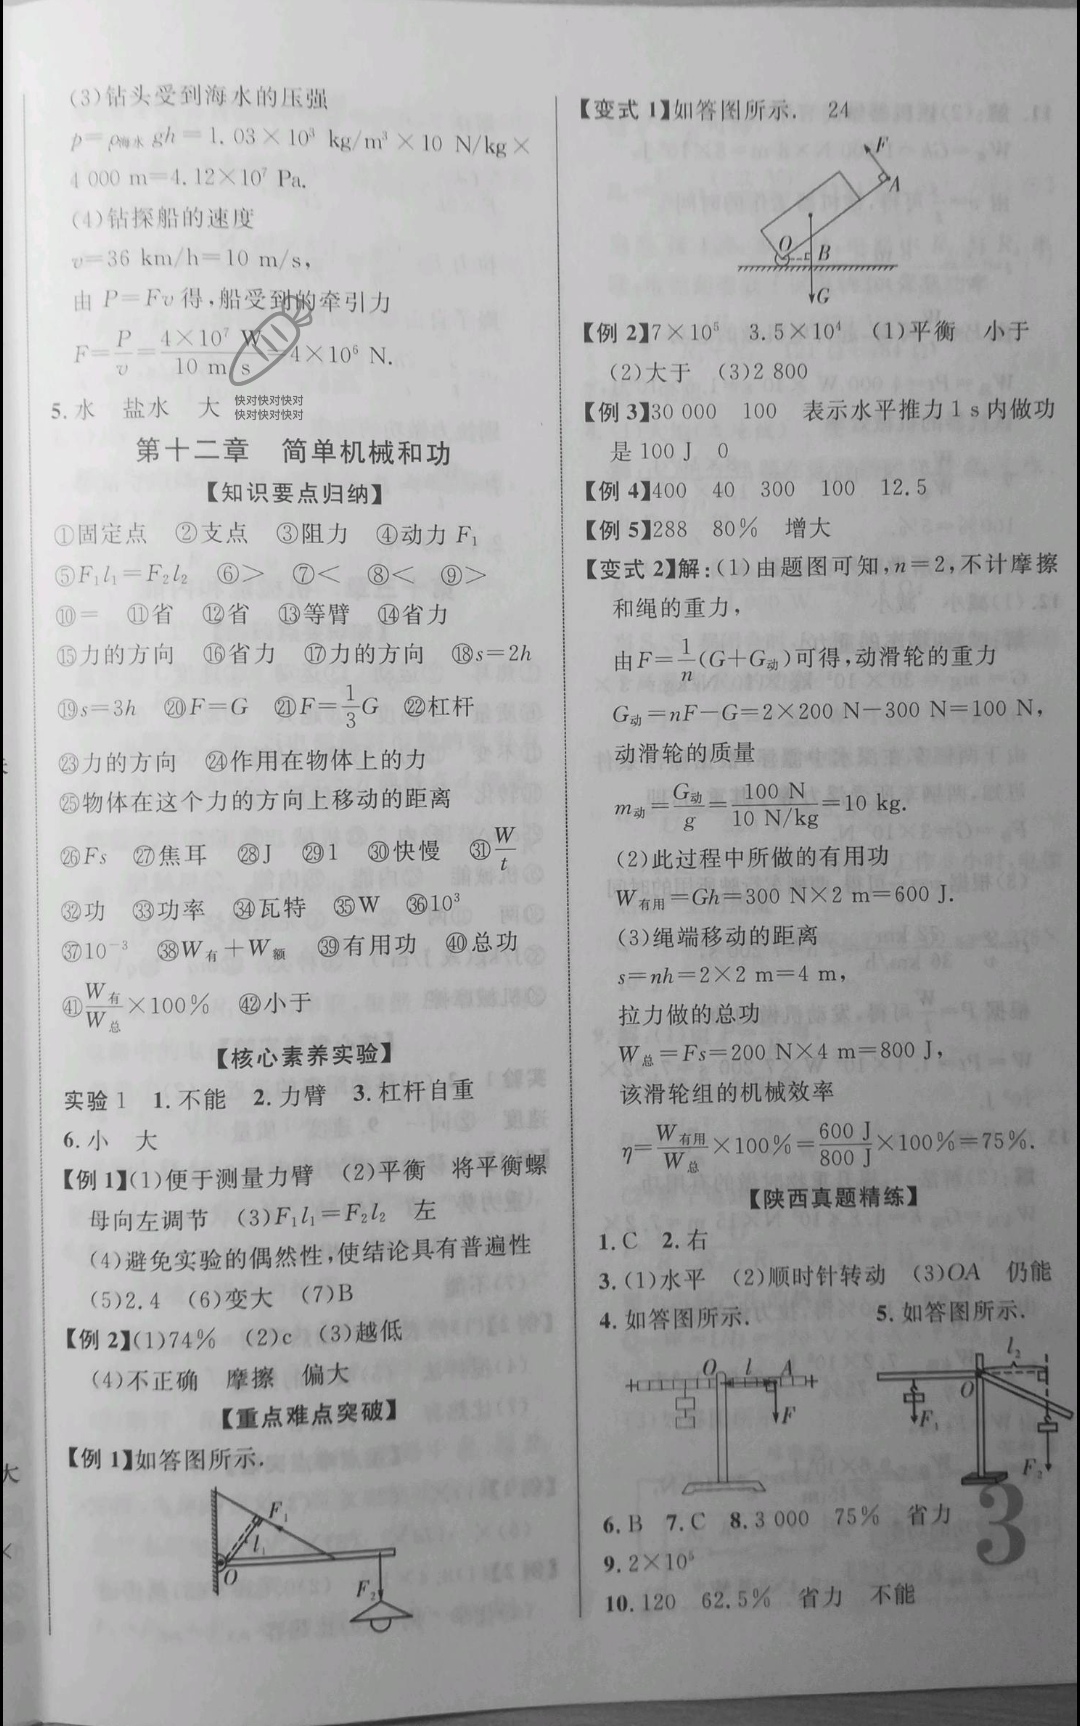 (3)钻头受到海水的压强
p=ρ海水gh=1.03×10³ kg/m³×10 N/kg×
4 000 m=4.12×10⁷ Pa.
(4)钻探船的速度
v=36 km/h=10 m/s,
由 P=Fv 得,船受到的牵引力
F=P/v=4×10⁷ W/10 m/s=4×10⁶ N.
5.水 盐水 大
快对快对快对
快对快对快对
第十二章 简单机械和功
【知识要点归纳】
①固定点 ②支点 ③阻力 ④动力 F₁
⑤F₁l₁=F₂l₂ ⑥> ⑦< ⑧< ⑨>
⑩= ⑪省 ⑫省 ⑬等臂 ⑭省力
⑮力的方向 ⑯省力 ⑰力的方向 ⑱s=2h
⑲s=3h ⑳F=G ㉑F=1/3G ㉒杠杆
㉓力的方向 ㉔作用在物体上的力
㉕物体在这个力的方向上移动的距离
㉖Fs ㉗焦耳 ㉘J ㉙1 ㉚快慢 ㉛W/t
㉜功 ㉝功率 ㉞瓦特 ㉟W ㊱10³
㊲10⁻³ ㊳W有+W额 ㊴有用功 ㊵总功
㊶W有/W总×100% ㊷小于
【核心素养实验】
实验1 1.不能 2.力臂 3.杠杆自重
6.小 大
【例1】(1)便于测量力臂 (2)平衡 将平衡螺
母向左调节 (3)F₁l₁=F₂l₂ 左
(4)避免实验的偶然性,使结论具有普遍性
(5)2.4 (6)变大 (7)B
【例2】(1)74% (2)c (3)越低
(4)不正确 摩擦 偏大
【重点难点突破】
【例1】如答图所示.
F₁
l₁
O
F₂
【变式1】如答图所示. 24
F
A
O B
G
【例2】7×10⁵ 3.5×10⁴ (1)平衡 小于
(2)大于 (3)2 800
【例3】30 000 100 表示水平推力1 s内做功
是100 J 0
【例4】400 40 300 100 12.5
【例5】288 80% 增大
【变式2】解:(1)由题图可知,n=2,不计摩擦
和绳的重力,
由F=1/n(G+G动)可得,动滑轮的重力
G动=nF-G=2×200 N-300 N=100 N,
动滑轮的质量
m动=G动/g=100 N/10 N/kg=10 kg.
(2)此过程中所做的有用功
W有用=Gh=300 N×2 m=600 J.
(3)绳端移动的距离
s=nh=2×2 m=4 m,
拉力做的总功
W总=Fs=200 N×4 m=800 J,
该滑轮组的机械效率
η=W有用/W总×100%=600 J/800 J×100%=75%.
【陕西真题精练】
1.C 2.右
3.(1)水平 (2)顺时针转动 (3)OA 仍能
4.如答图所示. 5.如答图所示.
O l A
F
l₂
O
F₁
F₂
6.B 7.C 8.3 000 75% 省力
9.2×10⁵
10.120 62.5% 省力 不能
3